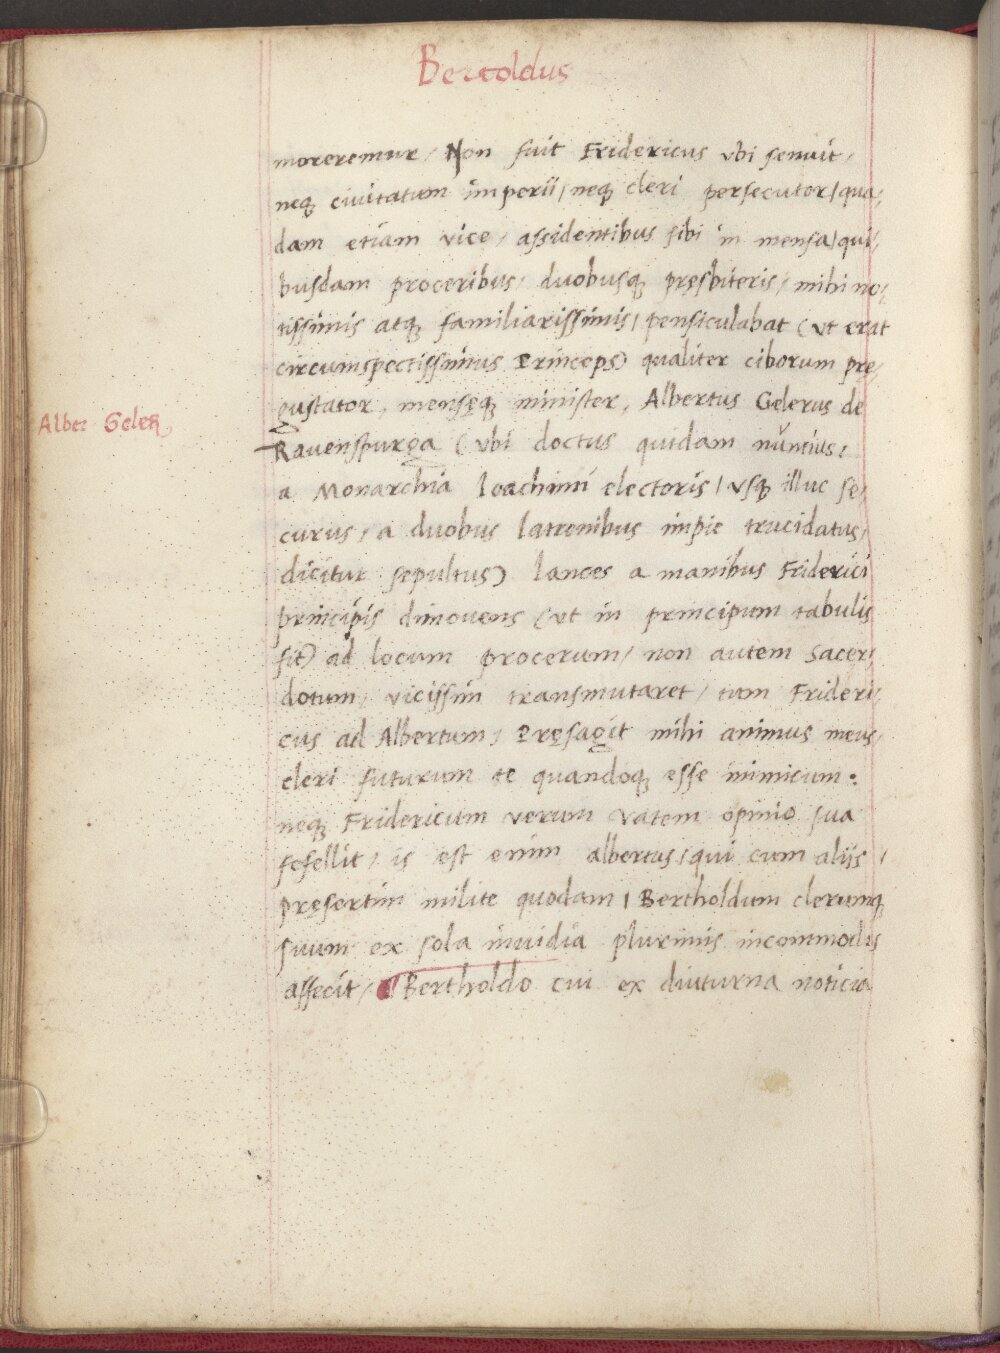 Bertoldus
moreremur / Non fuit Fridericus vbi senuit /
neqꝫ ciuitatum imperii / neqꝫ cleri persecutor / qua/
dam etiam vice / assidentibus sibi in mensa / qui/
busdam proceribus / duobusqꝫ pręsbiteris / mihi no/
tissimis atqꝫ familiarissimis / pensiculabat (vt erat
circumspectissimus Princeps) qualiter ciborum prę/
gustator, mensęqꝫ minister, Albertus Gelerus de
Alber Geler
Rauenspurga (vbi doctus quidam nuntius /
a Monarchia Ioachimi electoris / vsqꝫ illuc se/
curus / a duobus latronibus impie trucidatus /
dicitur sepultus) lances a manibus Friderici
principis dimouens (vt in principum tabulis
fit) ad locum procerum / non autem Sacer/
dotum / vicissim transmutaret / tum Frideri/
cus ad Albertum / Pręsagit mihi animus meus /
cleri futurum te quandoqꝫ esse inimicum .
neqꝫ Fridericum verum vatem opinio sua
fefellit / is est enim albertus / qui cum aliis /
pręsertim milite quodam / Bertholdum clerumqꝫ
suum ex sola inuidia plurimis incommodis
affecit / Bertholdo cui ex diuturna noticia